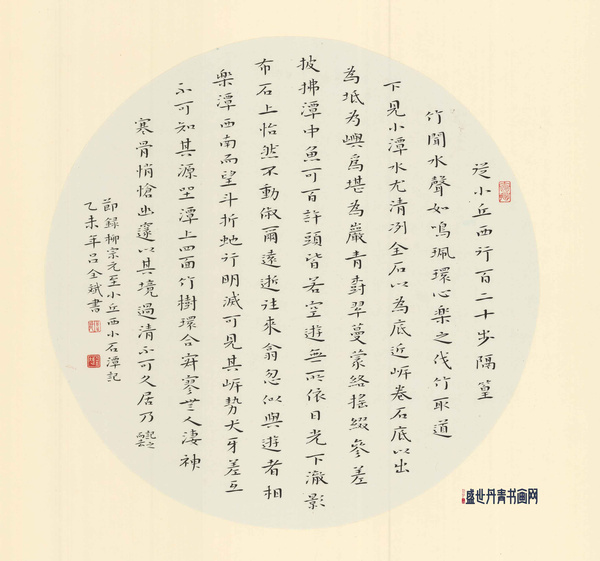 從小丘西行百二十步隔篁
竹聞水聲如鳴珮環心樂之伐竹取道
下見小潭水尤清冽全石以為底近岸卷石底以出
為坻為嶼為堪為巖青樹翠蔓蒙絡搖綴參差
披拂潭中魚可百許頭皆若空遊無所依日光下澈影
布石上怡然不動俶爾遠逝往來翕忽似與遊者相
樂潭西南而望斗折蛇行明滅可見其岸勢犬牙差互
不可知其源坐潭上四面竹樹環合寂寥無人淒神
寒骨悄愴幽邃以其境過清不可久居乃記之而去
節錄柳宗元至小丘西小石潭記
乙未年呂金斌書
盛世丹青书画网